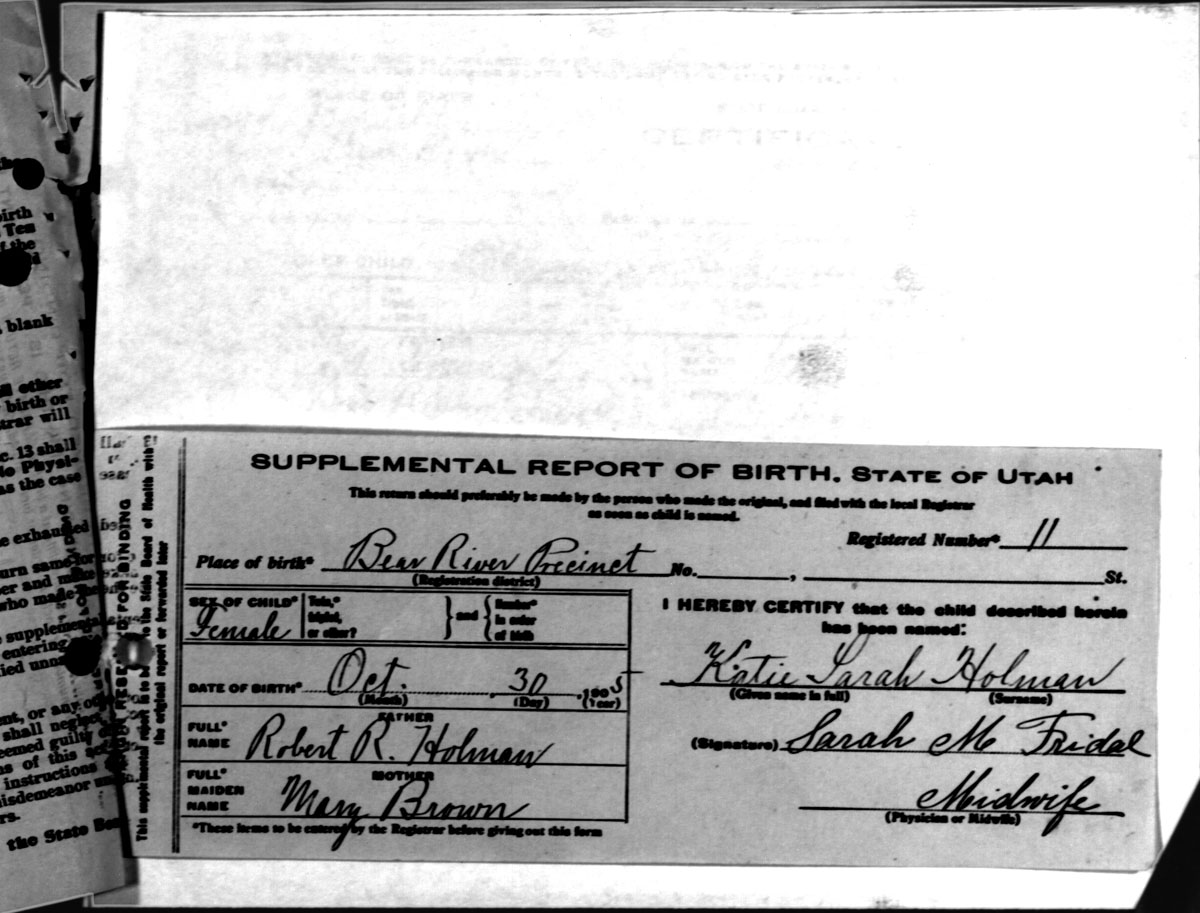 the
birth
Ten
of the
blank
all other
birth or
strar will
c. 13 shall
No Physi-
as the case
be exhausted
urn same for
er and make
who made
supplemental
entering
ent, or any
shall neglect
eemed guilty
ns of this
instructions
misdemeanor
rs.
the State
FOR BINDING
This supplemental report is to be to the State Board of Health with
the original report or forwarded later
SUPPLEMENTAL REPORT OF BIRTH. STATE OF UTAH
This return should preferably be made by the person who made the original, and filed with the local Registrar
as soon as child is named.
Registered Number* 11
Place of birth* Bear River Precinct No. , St.
(Registration district)
SEX OF CHILD* Female
Twin,* triplet, or other? } and { Number* in order of birth
DATE OF BIRTH* Oct. 30, 1905
(Month) (Day) (Year)
FATHER
FULL* NAME Robert R. Holman
MOTHER
FULL* MAIDEN NAME Mary Brown
*These items to be entered by the Registrar before giving out this form
I HEREBY CERTIFY that the child described herein
has been named:
Katie Sarah Holman
(Given name in full) (Surname)
(Signature) Sarah M Fridal
Midwife
(Physician or Midwife)